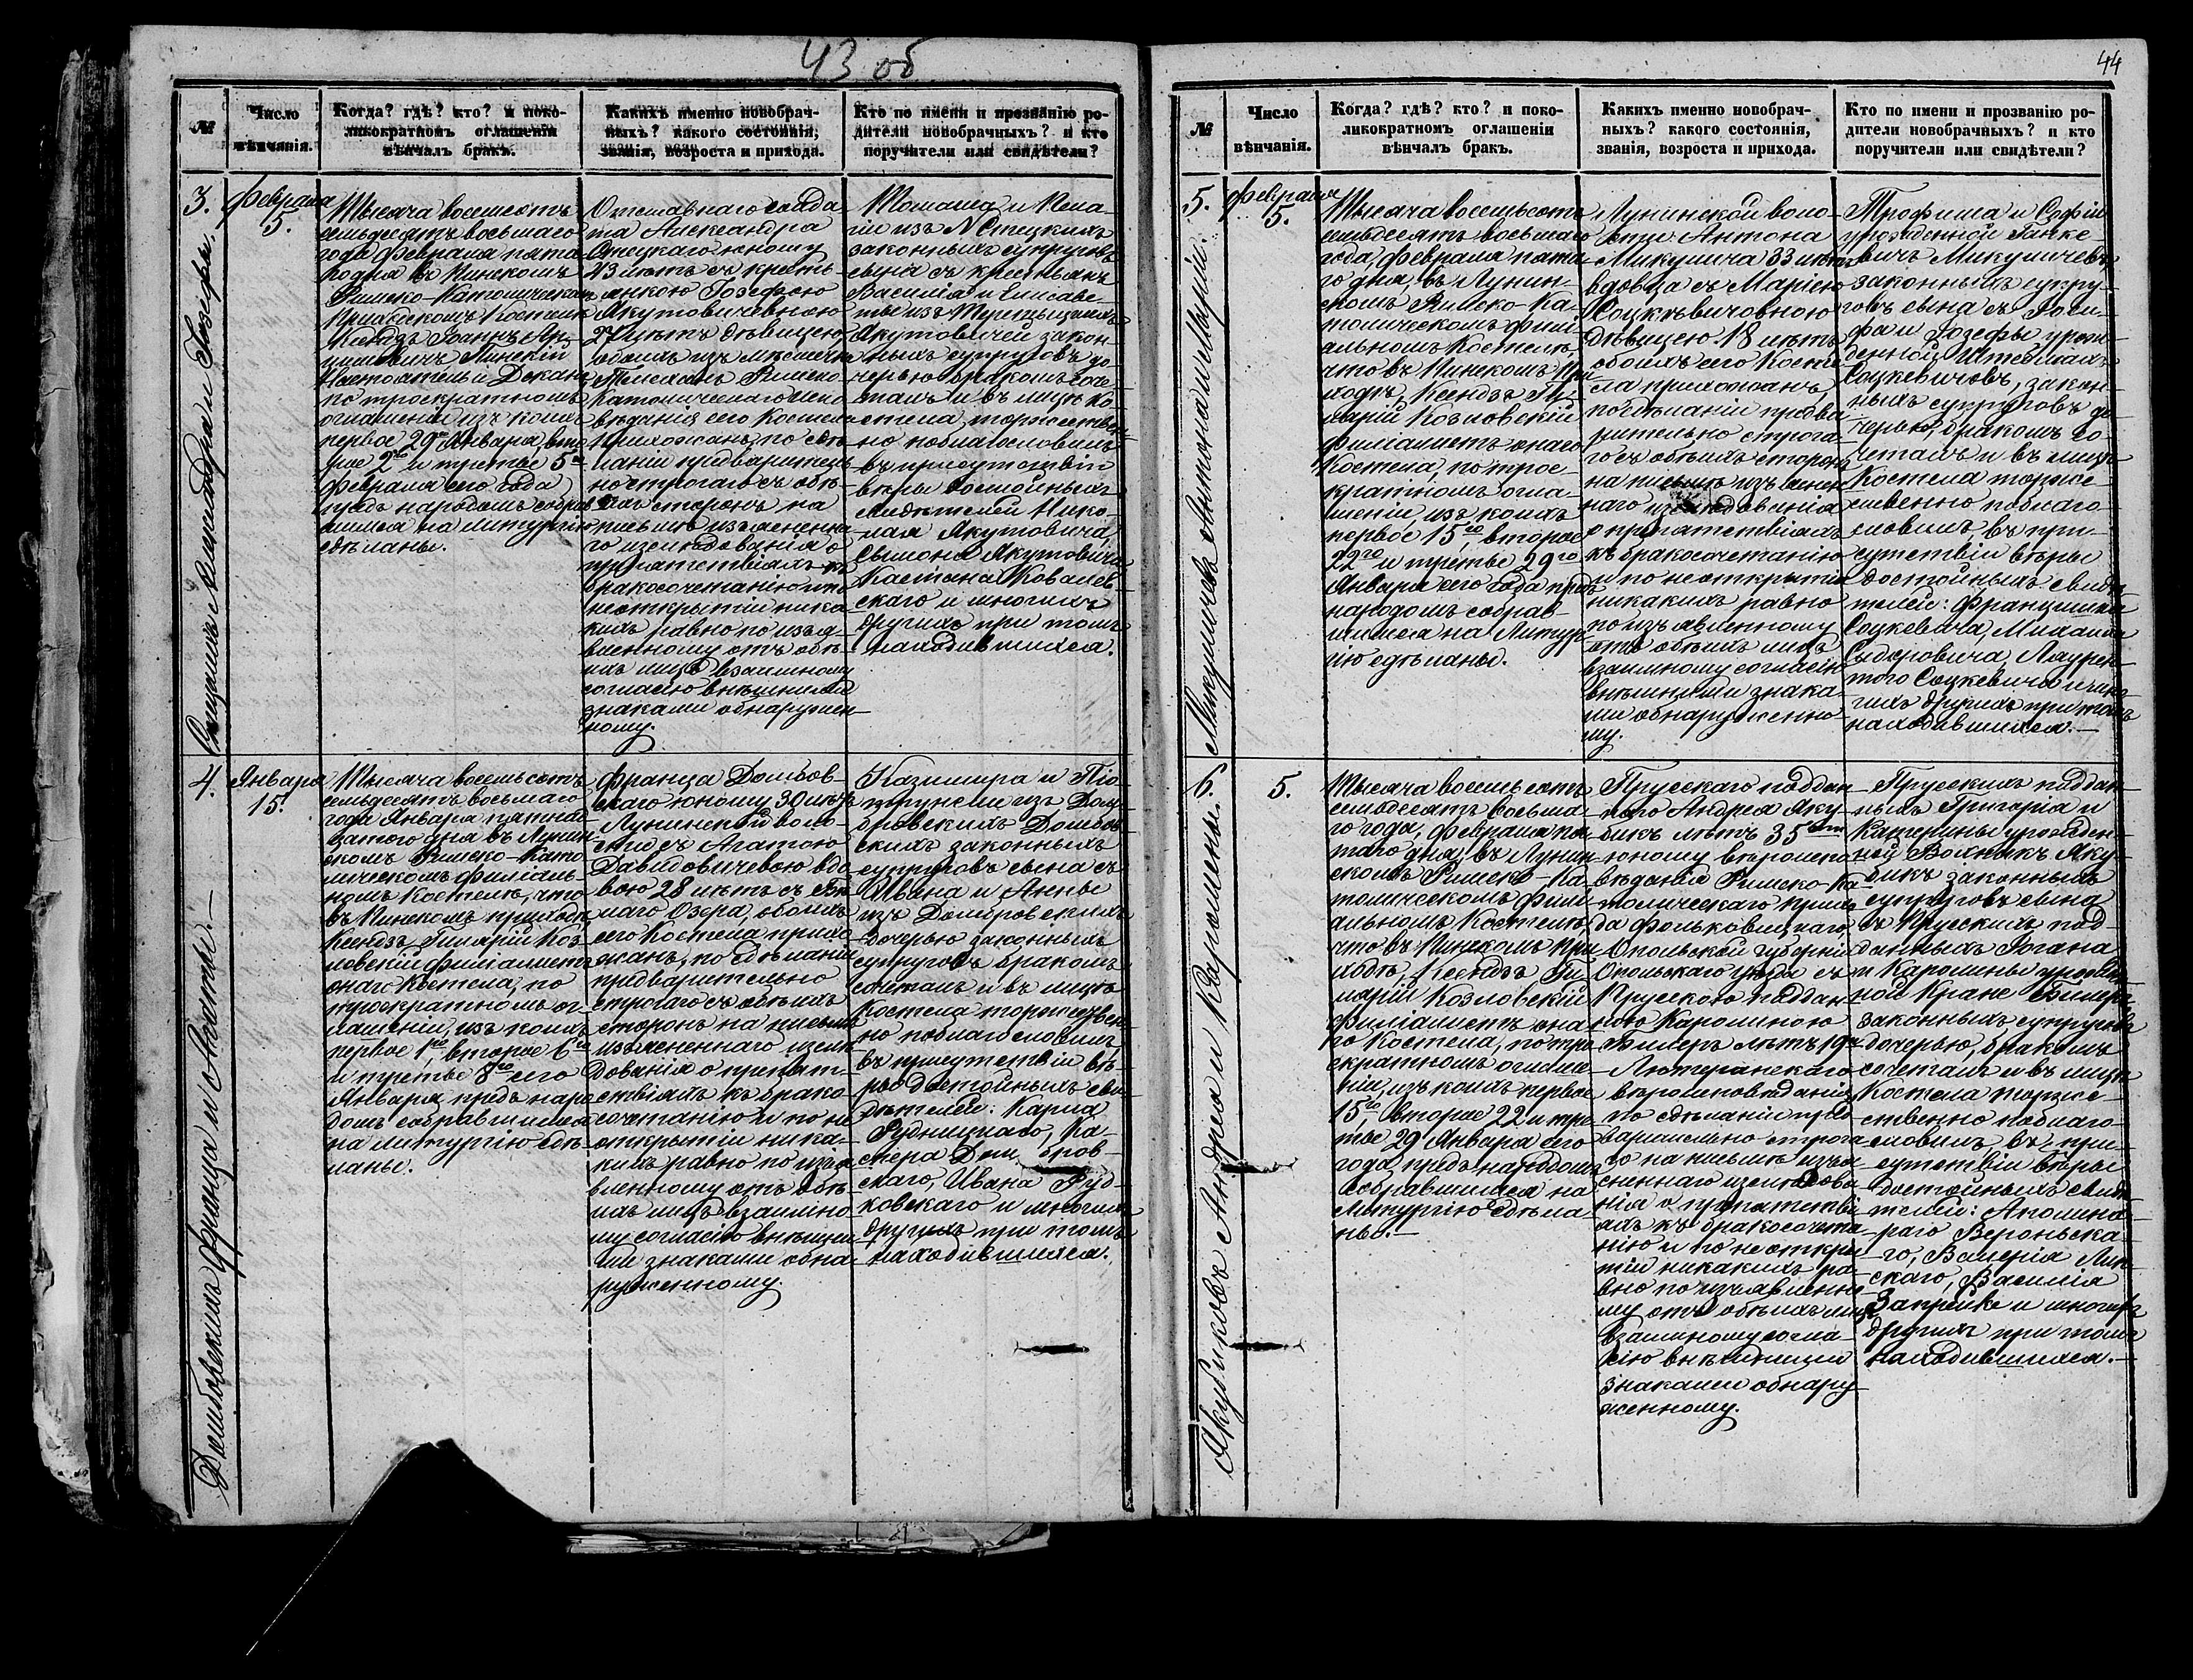 43 об
№
Число
вѣнчанія.
Когда? гдѣ? кто? и поко-
ликократномъ оглашеніи
вѣнчалъ бракъ.
Какихъ именно новобрач-
ныхъ? какого состоянія,
званія, возроста и прихода.
Кто по имени и прозванію ро-
дители новобрачныхъ? и кто
поручители или свидѣтели?
3.
Александра и Іозефы.
Февраля
5.
Тысяча восемьсотъ
семьдесятъ восьмаго
года Февраля пята-
го дня въ Пинскомъ
Римско-Католическомъ
Приходскомъ Костелѣ
Ксендзъ Іоаннъ
Пинскій
Настоятель и Деканъ
по троекратномъ
оглашеніи изъ коихъ
первое 29го Января, вто
рое 2го и третье 5го
Февраля сего года
предъ народомъ собрав
шимся на литургію
сдѣланы.
Отставнаго солда
та Александра
Стецкаго юношу
23 лѣтъ съ кресть-
янкою Іозефою
Якутовичевною
27 лѣтъ дѣвицею
обоихъ изъ мѣстечка
Телеханъ Римско
Католическаго испо
вѣданія сего Костела
прихожанъ, по сдѣ
ланіи предваритель
но строгаго съ обѣ-
ихъ сторонъ на
письмѣ изъясненна
го изслѣдованія о
препятствіяхъ къ
бракосочетанію и по
неоткрытіи ника
кихъ равно по изъя-
вленному отъ обѣ-
ихъ лицъ взаимному
согласію внѣшними
знаками обнаружен
ному.
Томаша и Пела
гіи изъ N Стецкихъ
законныхъ супруговъ
сына съ крестьянъ
Василія и Елисаве-
ты изъ
Якутовичей закон-
ныхъ супруговъ до-
черью бракомъ соче
талъ и въ лицѣ ко
стела торжествен
но поблагословилъ
въ присутствіи
вѣры достойныхъ
свидѣтелей Нико-
лая Якутовича,
Сымона Якутовича
Каетана Ковалев-
скаго и многихъ
другихъ при томъ
находившихся.
4.
Домбровскихъ Франца и Агаты.
Января
15.
Тысяча восемьсотъ
семьдесятъ восьмаго
года Января пятнад
цатого дня въ Лунин
скомъ Римско-Като
лическомъ филіаль-
номъ Костелѣ, что
въ Пинскомъ приходѣ
Ксендзъ Гиларій Коз
ловскій филіалистъ
онаго Костела, по
троекратномъ ог-
лашеніи, изъ коихъ
первое 1го, второе 6го
и третье 8го сего
Января предъ наро
домъ собравшимся
на литургію сдѣ-
ланы.
Франца Домбров-
скаго юношу 30 лѣтъ
Лунинской воло-
сти съ Агатою
Давидовичевою вдо
вою 28 лѣтъ съ Бѣ
лаго Озера, обоихъ
сего Костела прихо
жанъ, по сдѣланіи
предварительно
строгаго съ обѣихъ
сторонъ на письмѣ
изъясненнаго изслѣ
дованія о препят-
ствіяхъ къ брако-
сочетанію и по не
открытіи ника-
кихъ равно по изъя
вленному отъ обѣ-
ихъ лицъ взаимно
му согласію внѣшни
ми знаками обна-
руженному.
Казимира и
изъ Дом
бровскихъ Домбров
скихъ законныхъ
супруговъ сына съ
Ивана и Анны
изъ Домбровскихъ
дочерью законныхъ
супруговъ бракомъ
сочеталъ и въ лицѣ
Костела торжествен
но поблагословилъ
въ присутствіи вѣ-
ры достойныхъ сви
дѣтелей: Карла
Рудницкаго, Ка-
спера Домбров-
скаго, Ивана Руд-
ковскаго и многихъ
другихъ при томъ
находившихся.
44
№
Число
вѣнчанія.
Когда? гдѣ? кто? и поко-
ликократномъ оглашеніи
вѣнчалъ бракъ.
Какихъ именно новобрач-
ныхъ? какого состоянія,
званія, возроста и прихода.
Кто по имени и прозванію ро-
дители новобрачныхъ? и кто
поручители или свидѣтели?
5.
Микуличевъ Антона и Маріи.
Февраля
5.
Тысяча восемьсотъ
семьдесятъ восьмаго
года, февраля пята
го дня, въ Лунин-
скомъ Римско-Ка-
толическомъ фили
альномъ Костелѣ,
что въ Пинскомъ При
ходѣ, Ксендзъ Ги-
ларій Козловскій
филіалистъ онаго
Костела, по трое-
кратномъ огла-
шеніи, изъ коихъ
первое 15го, второе
22го и третье 29го
Января сего года предъ
народомъ собрав-
шимся на Литур
гію сдѣланы.
Лунинской воло-
сти Антона
Микулича 33 лѣтъ
вдовца съ Маріею
Соцкѣвичовною
дѣвицею 18 лѣтъ
обоихъ сего Косте
ла прихожанъ,
по сдѣланіи предва
рительно строга-
го съ обѣихъ сторонъ
на письмѣ изъяснен
наго изслѣдованія
о препятствіяхъ
къ бракосочетанію
и по неоткрытіи
никакихъ равно
по изъявленному
отъ обѣихъ лицъ
взаимному согласію
внѣшними знака-
ми обнаруженно-
му.
Трофима и Софіи
урожденной Ганке-
вичъ Микуличевъ
законныхъ супру-
говъ сына съ Іоси-
фа и Іозефы урож-
денной
Соцкевичовъ, закон-
ныхъ супруговъ до-
черью, бракомъ со-
четалъ и въ лицѣ
Костела торже-
ственно поблаго-
словилъ, въ при-
сутствіи вѣры
достойныхъ свидѣ
телей: Францишка
Соцкевича, Михаила
Сыдоровича, Лаурен-
того Соцкевича и мно
гихъ другихъ при томъ
находившихся.
6.
Якубиковъ Андрея и Каролины.
5.
Тысяча восемьсотъ
семьдесятъ восьма-
го года, февраля пя
таго дня, въ Лунин
скомъ Римско-Ка-
толическомъ фили
альномъ Костелѣ,
что въ Пинскомъ При
ходѣ, Ксендзъ Ги-
ларій Козловскій
филіалистъ она-
го Костела, по трое
кратномъ оглаше-
ніи, изъ коихъ первое
15го, второе 22 и тре
тье 29 Января сего
года предъ народомъ
собравшимся на
Литургію сдѣла
ны.
Прусскаго поддан-
наго Андрея Яку-
бикъ лѣтъ 35
юношу вѣроиспо-
вѣданія Римско-Ка-
толическаго прихо
да
Опольской губерніи
Опольскаго уѣзда съ
Прусскою поддан-
ною Каролиною
лѣтъ 19
Лютеранскаго
вѣроисповѣданія
по сдѣланіи пред-
варительно строга
го на письмѣ изъя
сненнаго изслѣдова
нія о препятстві
яхъ къ бракосочета
нію и по неоткры
тіи никакихъ ра-
вно по изъявленно
му отъ обѣихъ лицъ
взаимному согла-
сію внѣшними
знаками обнару-
женному.
Прусскихъ поддан-
ныхъ Григорія и
Катерины урожден-
ной Яку-
бикъ законныхъ
супруговъ сына
съ Прусскихъ под-
данныхъ Іогана
и Каролины урожден
ной Кране
законныхъ супруговъ
дочерью, бракомъ
сочеталъ и въ лицѣ
Костела торже-
ственно поблаго-
словилъ, въ при-
сутствіи вѣры
достойныхъ свидѣ
телей: Аполина-
раго
го, Валерія
скаго, Василія
Запрейке и многихъ
другихъ при томъ
находившихся.